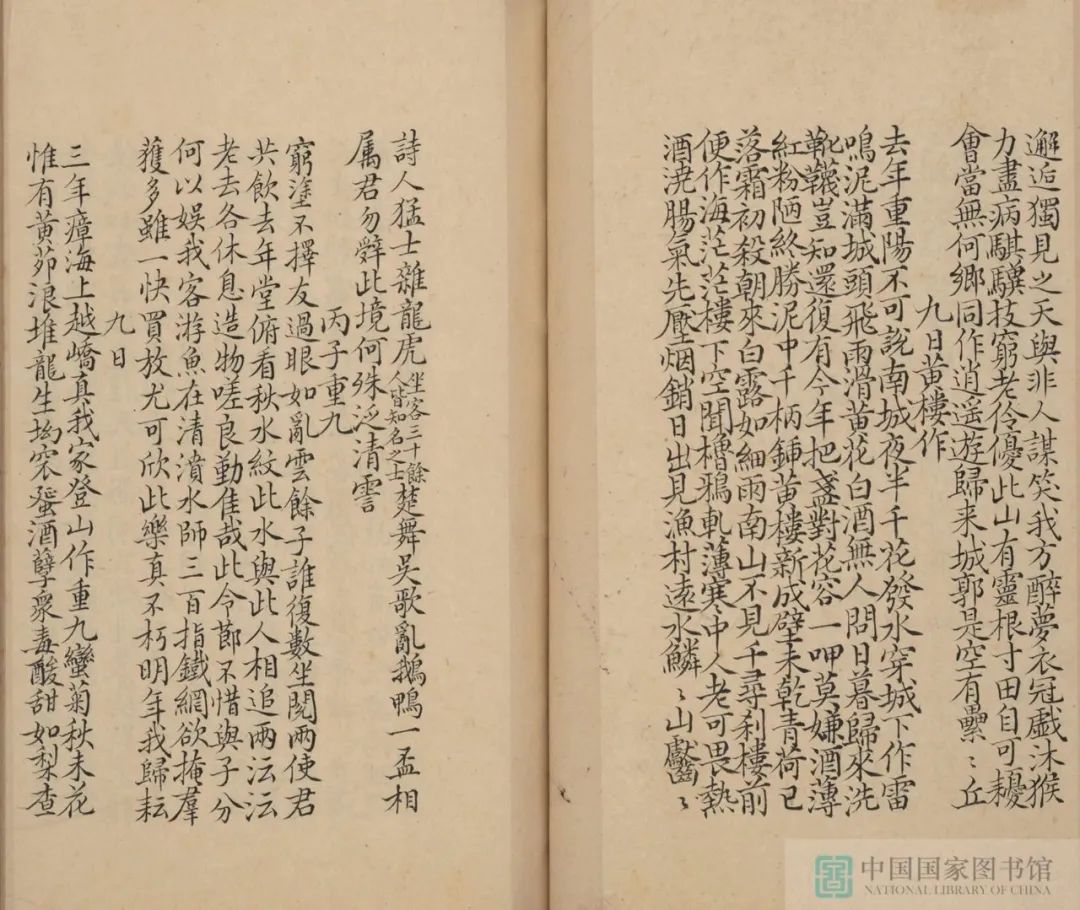 邂逅獨見之天與非人謀笑我方醉夢衣冠戲沐猴
力盡病騏驥技窮老伶優此山有靈根寸田自可耰
會當無何鄉同作逍遥遊歸来城郭是空有纍〻丘
九日黄樓作
去年重陽不可說南城夜半千花發水穿城下作雷
鳴泥滿城頭飛雨滑黄花白酒無人問日暮歸來洗
靴韈豈知還復有今年把盞對花容一呷莫嫌酒薄
紅粉陋終勝泥中千柄鍤黄樓新成壁未乾青荷已
落霜初殺朝來白露如細雨南山不見千尋刹樓前
便作海茫茫樓下空聞櫓鴉軋薄寒中人老可畏熱
酒澆腸氣先壓烟銷日出見漁村遠水鱗〻山齾〻
詩人猛士雜龍虎坐客三十餘人皆知名之士楚舞吳歌亂鵝鴨一盃相
属君勿辤此境何殊泛清霅
丙子重九
窮塗不擇友過眼如亂雲餘子誰復數坐閱兩使君
共飲去年堂俯看秋水紋此水與此人相追兩沄沄
老去各休息造物嗟良勤佳哉此令莭不惜與子分
何以娛我客游魚在清濆水師三百指鐵網欲掩羣
獲多雖一快買放尤可欣此樂真不朽明年我歸耘
九日
三年瘴海上越嶠真我家登山作重九蠻菊秋未花
惟有黄茆浪堆龍生坳窊蜑酒孽衆毒酸甜如梨查
中国国家图书馆
NATIONAL LIBRARY OF CHINA